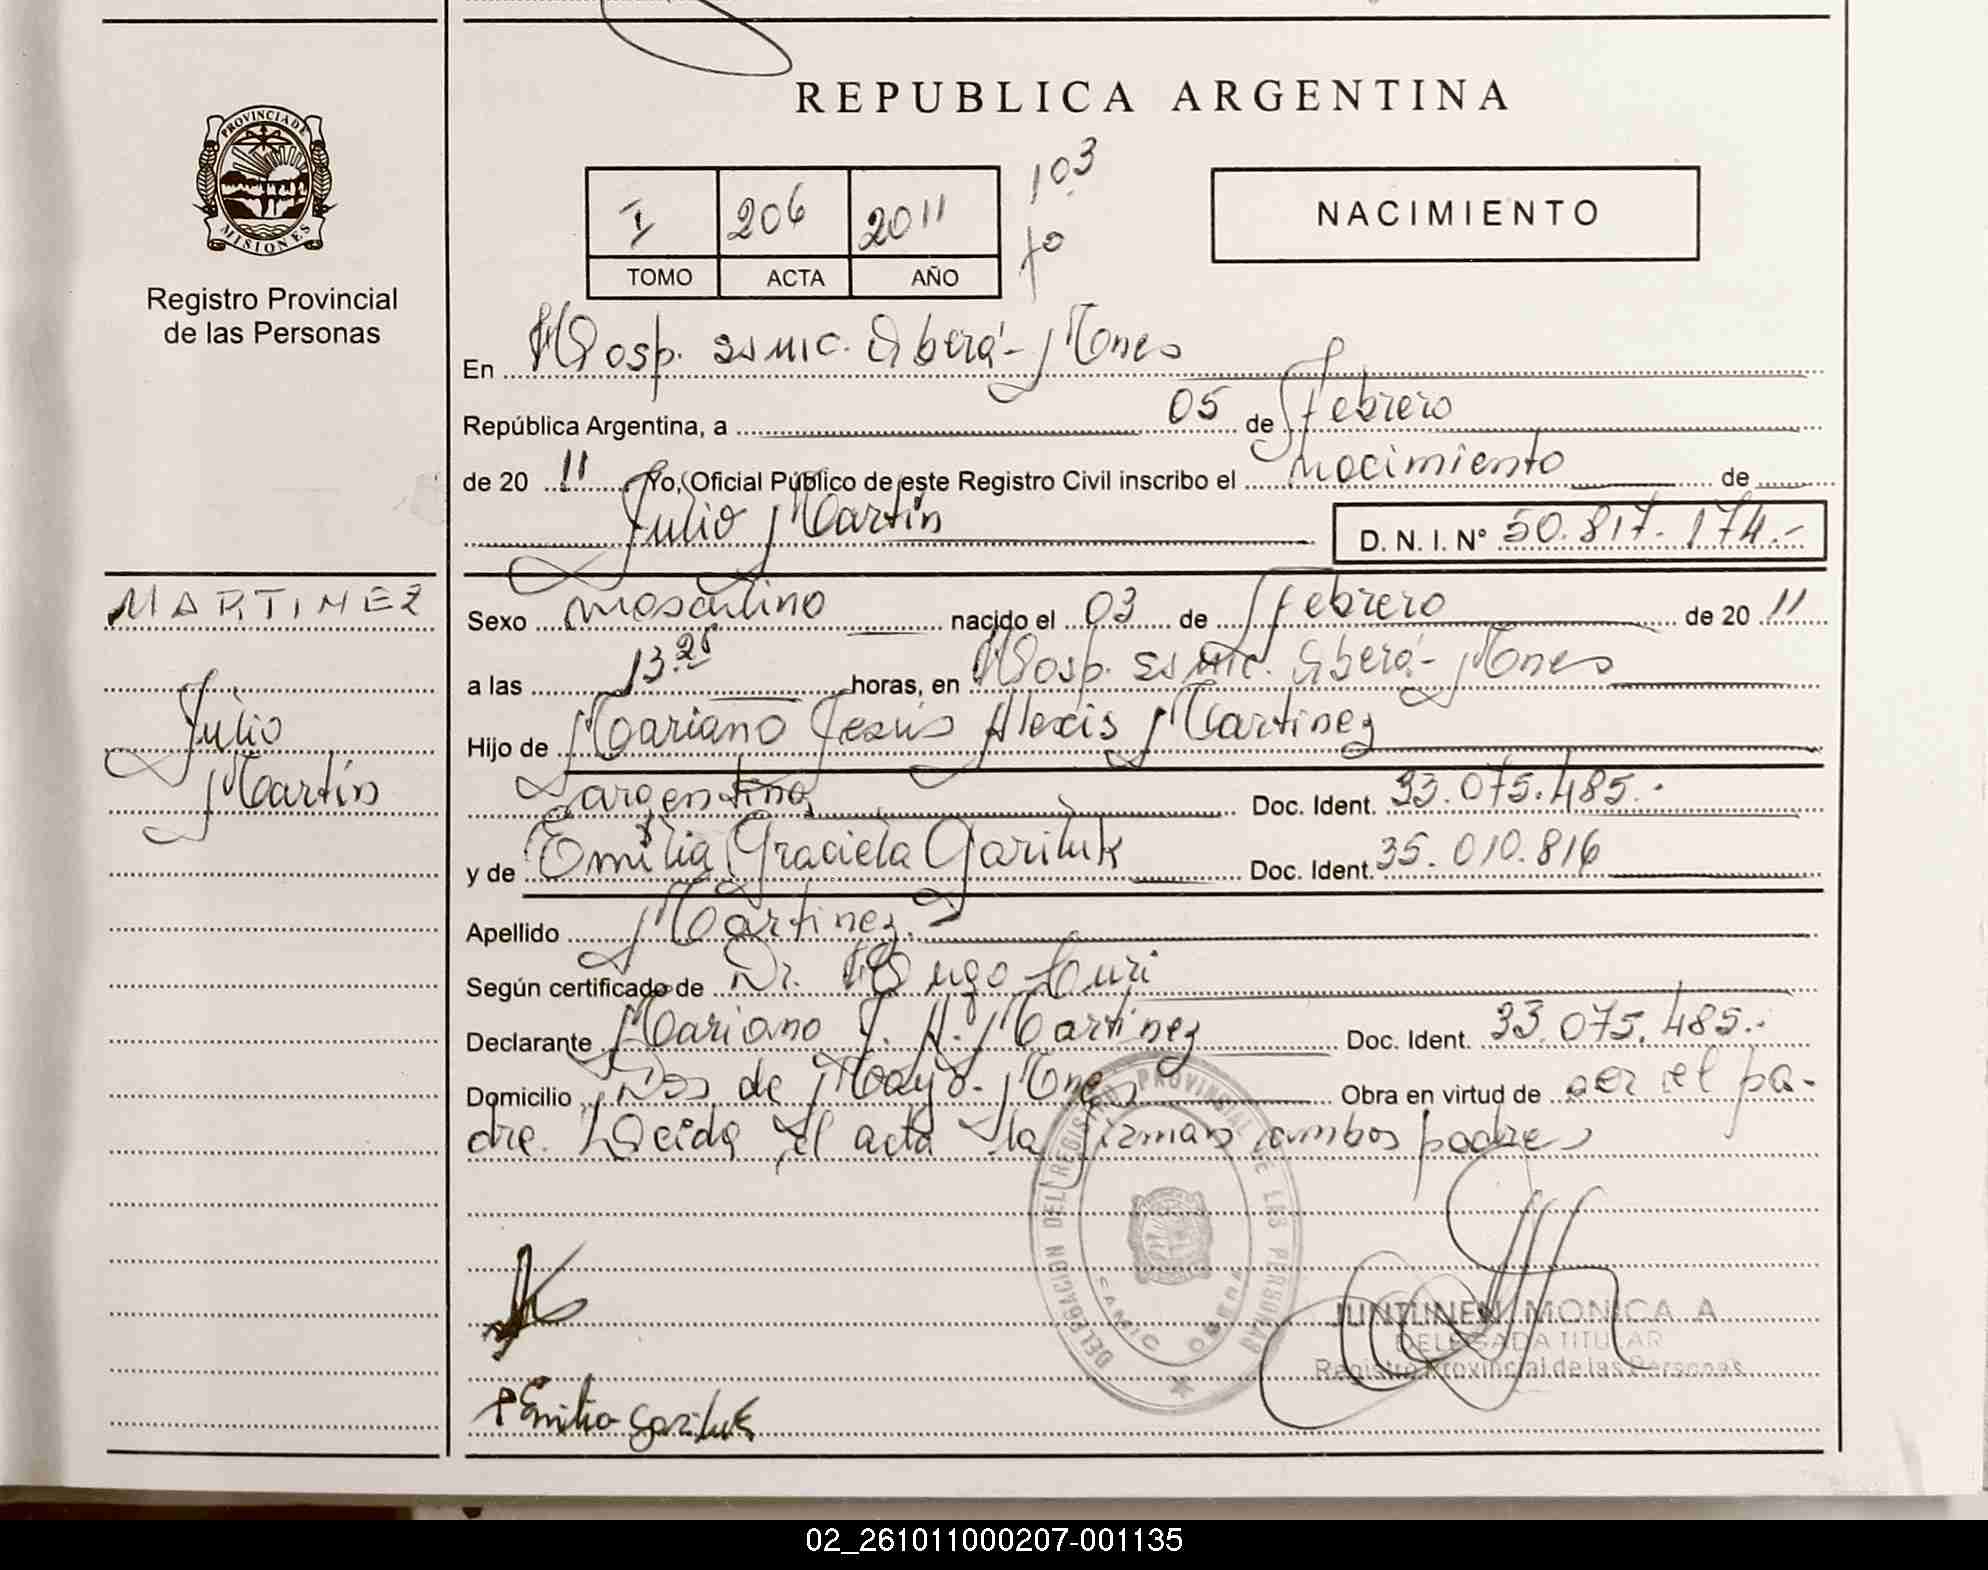 REPUBLICA ARGENTINA
PROVINCIA DE
MISIONES
Registro Provincial
de las Personas
I 206 2011 103
TOMO ACTA AÑO fo
NACIMIENTO
En Hosp. Oberá - Mnes
República Argentina, a 05 de Febrero
de 20 11 Yo, Oficial Público de este Registro Civil inscribo el nacimiento de
Julio Martín D. N. I. N° 50.817.174.-
MARTINEZ
Julio
Martín
Sexo masculino nacido el 03 de Febrero de 20 11
a las 13. horas, en Hosp. Oberá - Mnes
Hijo de Mariano Jesús Alexis Martinez
argentino Doc. Ident. 33.075.485.-
y de Emilia Graciela Gariluk Doc. Ident. 35.010.816
Apellido Martinez.
Según certificado de Dr. Hugo
Declarante Mariano J. A. Martinez Doc. Ident. 33.075.485.-
Domicilio Dos de Mayo - Mnes Obra en virtud de ser el pa-
dre. Leida el acta la firman ambos padres
DELEGACION DEL REGISTRO PROVINCIAL DE LAS PERSONAS
SAMIC OBERA
JUNTUNEN MONICA A
DELEGADA TITULAR
Registro Provincial de las Personas
Emilia Gariluk
02_261011000207-001135